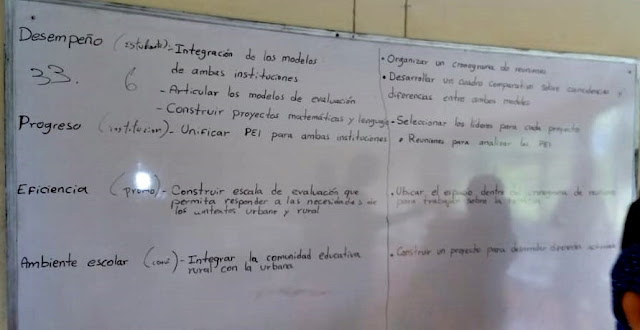 Desempeño (estudiante) - Integración de los modelos
de ambas instituciones
33. 6
- Articular los modelos de evaluación
- Construir proyectos matemáticas y lenguaje
Progreso (institución) - Unificar PEI para ambas instituciones
Eficiencia (promo) - Construir escala de evaluación que
permita responder a las necesidades de
los contextos urbano y rural
Ambiente escolar - Integrar la comunidad educativa
rural con la urbana
• Organizar un cronograma de reuniones
• Desarrollar un cuadro comparativo sobre coincidencias y
diferencias entre ambos modelos
- Seleccionar los líderes para cada proyecto
• Reuniones para analizar los PEI
• Ubicar el espacio dentro cronograma de
para trabajar sobre la
• Construir un proyecto para desarrollar